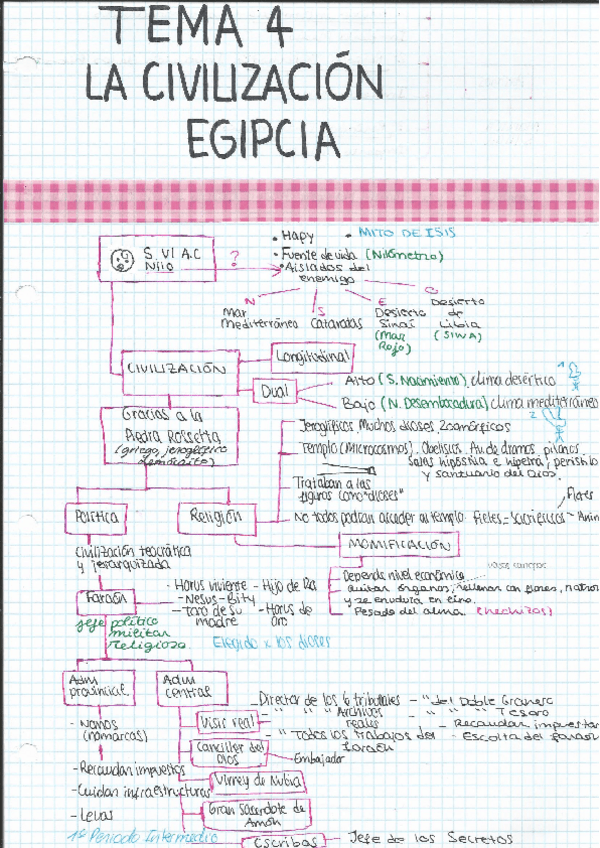 TEMA 4
LA CIVILIZACIÓN
EGIPCIA
S. VI A.C
Nilo
?
• Hapy
• MITO DE ISIS
• Fuente de vida (Nilómetro)
• Aislados del
enemigo
N
S
E
O
Mar
mediterráneo
Cataratas
Desierto
de
Sinaí
(Mar
Rojo)
Desierto
de
Libia
(SIWA)
CIVILIZACIÓN
Longitudinal
Dual
Alto (S. Nacimiento), clima desértico
1
Bajo (N. Desembocadura) clima mediterráneo
2
Gracias a la
Piedra Rossetta
(griego, jeroglífico
demótico)
Jeroglíficos, Muchos dioses, Zoomórficos
Templo (Microcosmos). Obeliscos. Av. de dromos, pilonos,
salas hipóstila e hípetra, peristilo
y santuario del Dios.
Trataban a las
figuras como "dioses"
Flores
No todos podían acceder al templo. Fieles - Sacrificios - Anim
Política
Religión
MOMIFICACIÓN
Civilización teocrática
y jerarquizada
vasos canopos
Depende nivel económico
Quitar órganos, rellenar con flores, natrón
y se envolvía en lino.
Pesado del alma (hechizos)
Faraón
- Horus viviente - Hijo de Ra
- Nesus-Bity
- Toro de su
madre
- Horus de
oro
jefe político
militar
religioso
Elegido x los dioses
Adm
provincial
Adm
central
- Nomos
(nomarcas)
- Recaudan impuestos
- Cuidan infraestructuras
- Levas
Visir real
- Director de los 6 tribunales - " del Doble Granero
- " " " Archivos - " " " Tesoro
reales
- Recaudar impuestos
- " Todos los trabajos del
faraón
- Escolta del faraón
Canciller del
Dios
Embajador
Virrey de Nubia
Gran Sacerdote de
Amón
1º Periodo Intermedio
Escribas
Jefe de los Secretos